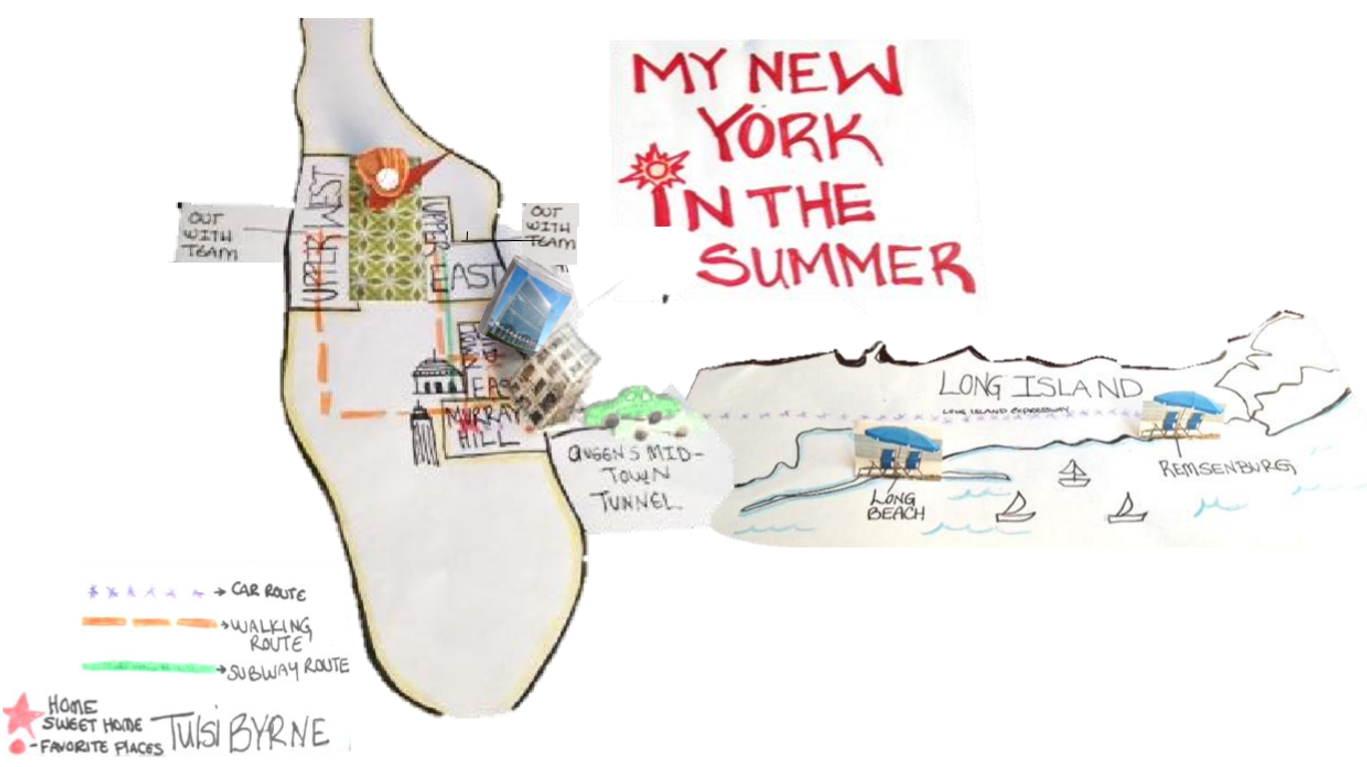 MY NEW
YORK
IN THE
SUMMER
UPPER WEST
OUT
WITH
TEAM
UPPER
EAST
OUT
WITH
TEAM
MURRAY
HILL
QUEENS MID-
TOWN
TUNNEL
LONG ISLAND
LONG ISLAND EXPRESSWAY
LONG
BEACH
REMSENBURG
→ CAR ROUTE
→ WALKING
ROUTE
→ SUBWAY ROUTE
HOME
SWEET HOME
- FAVORITE PLACES
TulSi BYRNE